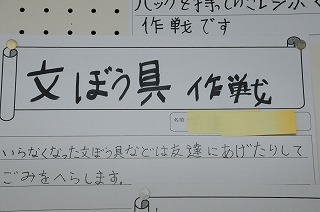 バックを持っていきレジぶく
作戦です
文ぼう具 作戦
名前
いらなくなった文ぼう具などは友達にあげたりして
ごみをへらします。